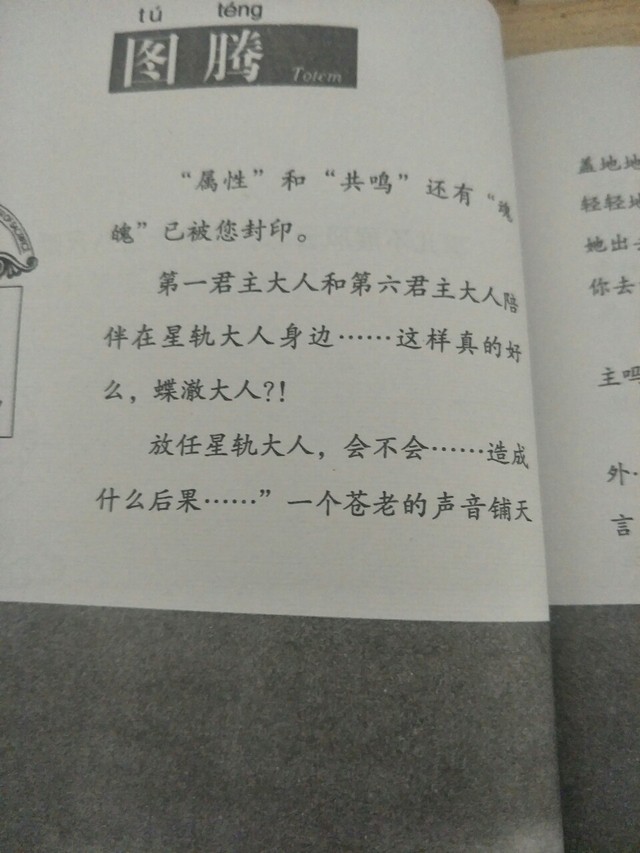 tú téng
图腾
Totem
“属性”和“共鸣”还有“魂
魄”已被您封印。
第一君主大人和第六君主大人陪
伴在星轨大人身边……这样真的好
么，蝶澈大人?!
放任星轨大人，会不会……造成
什么后果……”一个苍老的声音铺天
盖地地
轻轻地
她出去
你去
主吗
外…
言